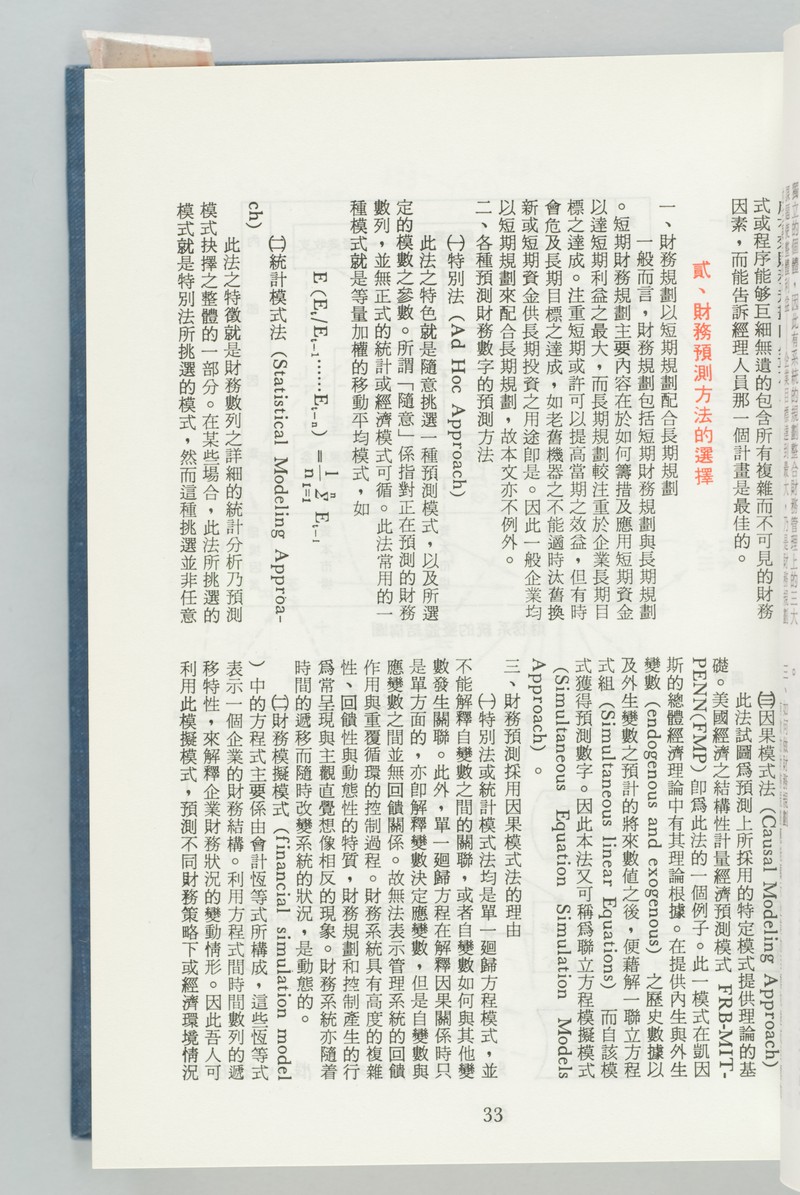 式或程序能够巨細無遺的包含所有複雜而不可見的財務
因素，而能告訴經理人員那一個計畫是最佳的。
貳、財務預測方法的選擇
一、財務規劃以短期規劃配合長期規劃
一般而言，財務規劃包括短期財務規劃與長期規劃
。短期財務規劃主要內容在於如何籌措及應用短期資金
以達短期利益之最大，而長期規劃較注重於企業長期目
標之達成。注重短期或許可以提高當期之效益，但有時
會危及長期目標之達成，如老舊機器之不能適時汰舊換
新或短期資金供長期投資之用途卽是。因此一般企業均
以短期規劃來配合長期規劃，故本文亦不例外。
二、各種預測財務數字的預測方法
㈠特別法 (Ad Hoc Approach)
此法之特色就是隨意挑選一種預測模式，以及所選
定的模數之參數。所謂「隨意」係指對正在預測的財務
數列，並無正式的統計或經濟模式可循。此法常用的一
種模式就是等量加權的移動平均模式，如
E (Et/Et-1……Et-n) = 1/n Σ(i=1→n) Et-1
㈡統計模式法 (Statistical Modeling Approa-
ch)
此法之特徵就是財務數列之詳細的統計分析乃預測
模式抉擇之整體的一部分。在某些場合，此法所挑選的
模式就是特別法所挑選的模式，然而這種挑選並非任意
㈢因果模式法 (Causal Modeling Approach)
此法試圖爲預測上所採用的特定模式提供理論的基
礎。美國經濟之結構性計量經濟預測模式 FRB-MIT-
PENN(FMP) 卽爲此法的一個例子。此一模式在凱因
斯的總體經濟理論中有其理論根據。在提供內生與外生
變數 (endogenous and exogenous) 之歷史數據以
及外生變數之預計的將來數值之後，便藉解一聯立方程
式組 (Simultaneous linear Equations) 而自該模
式獲得預測數字。因此本法又可稱爲聯立方程模擬模式
(Simultaneous Equation Simulation Models
Approach) 。
三、財務預測採用因果模式法的理由
㈠特別法或統計模式法均是單一廻歸方程模式，並
不能解釋自變數之間的關聯，或者自變數如何與其他變
數發生關聯。此外，單一廻歸方程在解釋因果關係時只
是單方面的，亦卽解釋變數決定應變數，但是自變數與
應變數之間並無回饋關係。故無法表示管理系統的回饋
作用與重覆循環的控制過程。財務系統具有高度的複雜
性、回饋性與動態性的特質，財務規劃和控制產生的行
爲常呈現與主觀直覺想像相反的現象。財務系統亦隨着
時間的遞移而隨時改變系統的狀況，是動態的。
㈡財務模擬模式 (financial simulation model
) 中的方程式主要係由會計恆等式所構成，這些恆等式
表示一個企業的財務結構。利用方程式間時間數列的遞
移特性，來解釋企業財務狀況的變動情形。因此吾人可
利用此模擬模式，預測不同財務策略下或經濟環境情況
33